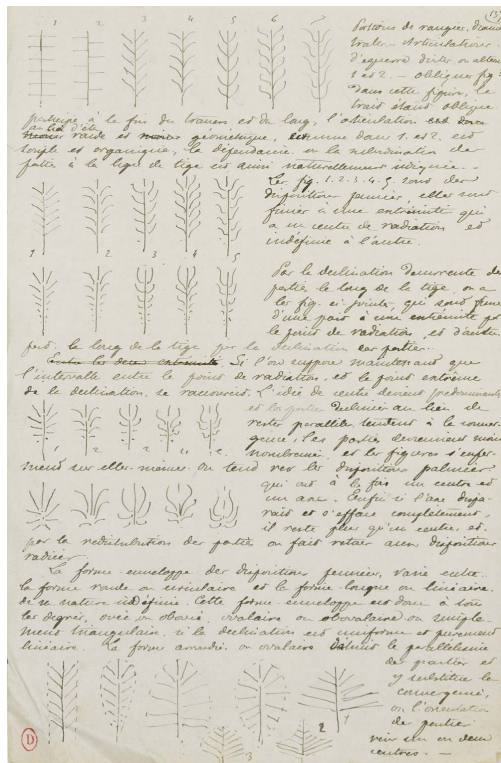 1 2 3 4 5 6 7
Portions de rangées, diamé
trales. Articulations
d'équerre droites ou alternes
1 et 2. — obliques fig.
Dans cette figure, le
trait étant oblique
participe à la fois du travers et du long, l'articulation
au lieu d'être
raide et géométrique, comme dans 1. et 2. est
souple et organique, la dépendance ou la subordination des
parties à la ligne de tige est ainsi naturellement indiquée.
Les fig. 1. 2. 3. 4. 5. sont des
dispositions pennées, elles sont
finies à une extrémité qui
a un centre de radiation et
indéfinie à l'autre.
1 2 3 4 5
Par la déclination décurrente des
parties le long de la tige, on a
les fig. ci-jointes, qui sont finies
d'une part à une extrémité par
le point de radiation, et d'autre
part, le long de la tige par la déclination des parties.
Si l'on suppose maintenant que
l'intervalle entre le point de radiation, et le point extrême
de la déclination, se raccourcit. L'idée de centre devient prédominante
et les parties au lieu de
rester parallèles tendent à la conver
gence, les parties deviennent moins
nombreuses, et les figures s'enfer
ment sur elles-mêmes. On tend vers les dispositions palmées
qui ont à la fois un centre et
un axe. Enfin si l'axe dispa
rait et s'efface complètement,
il reste plus qu'un centre, et
par la redistribution des parties on fait retour aux dispositions
radiées.
La forme-enveloppe des dispositions pennées, varie entre
la forme ronde ou circulaire et la forme longue ou linéaire
de nature indéfinie. Cette forme-enveloppe est donc à tous
les degrés, ovée ou obovée, ovalaire ou obovalaire ou simple
ment triangulaire, si la déclination est uniforme et purement
linéaire. La forme arrondie, ou ovalaire le parallélisme
des parties et
y substitue la
convergence,
ou l'orientation
des parties
vers un ou deux
centres. —
1
2
3
D